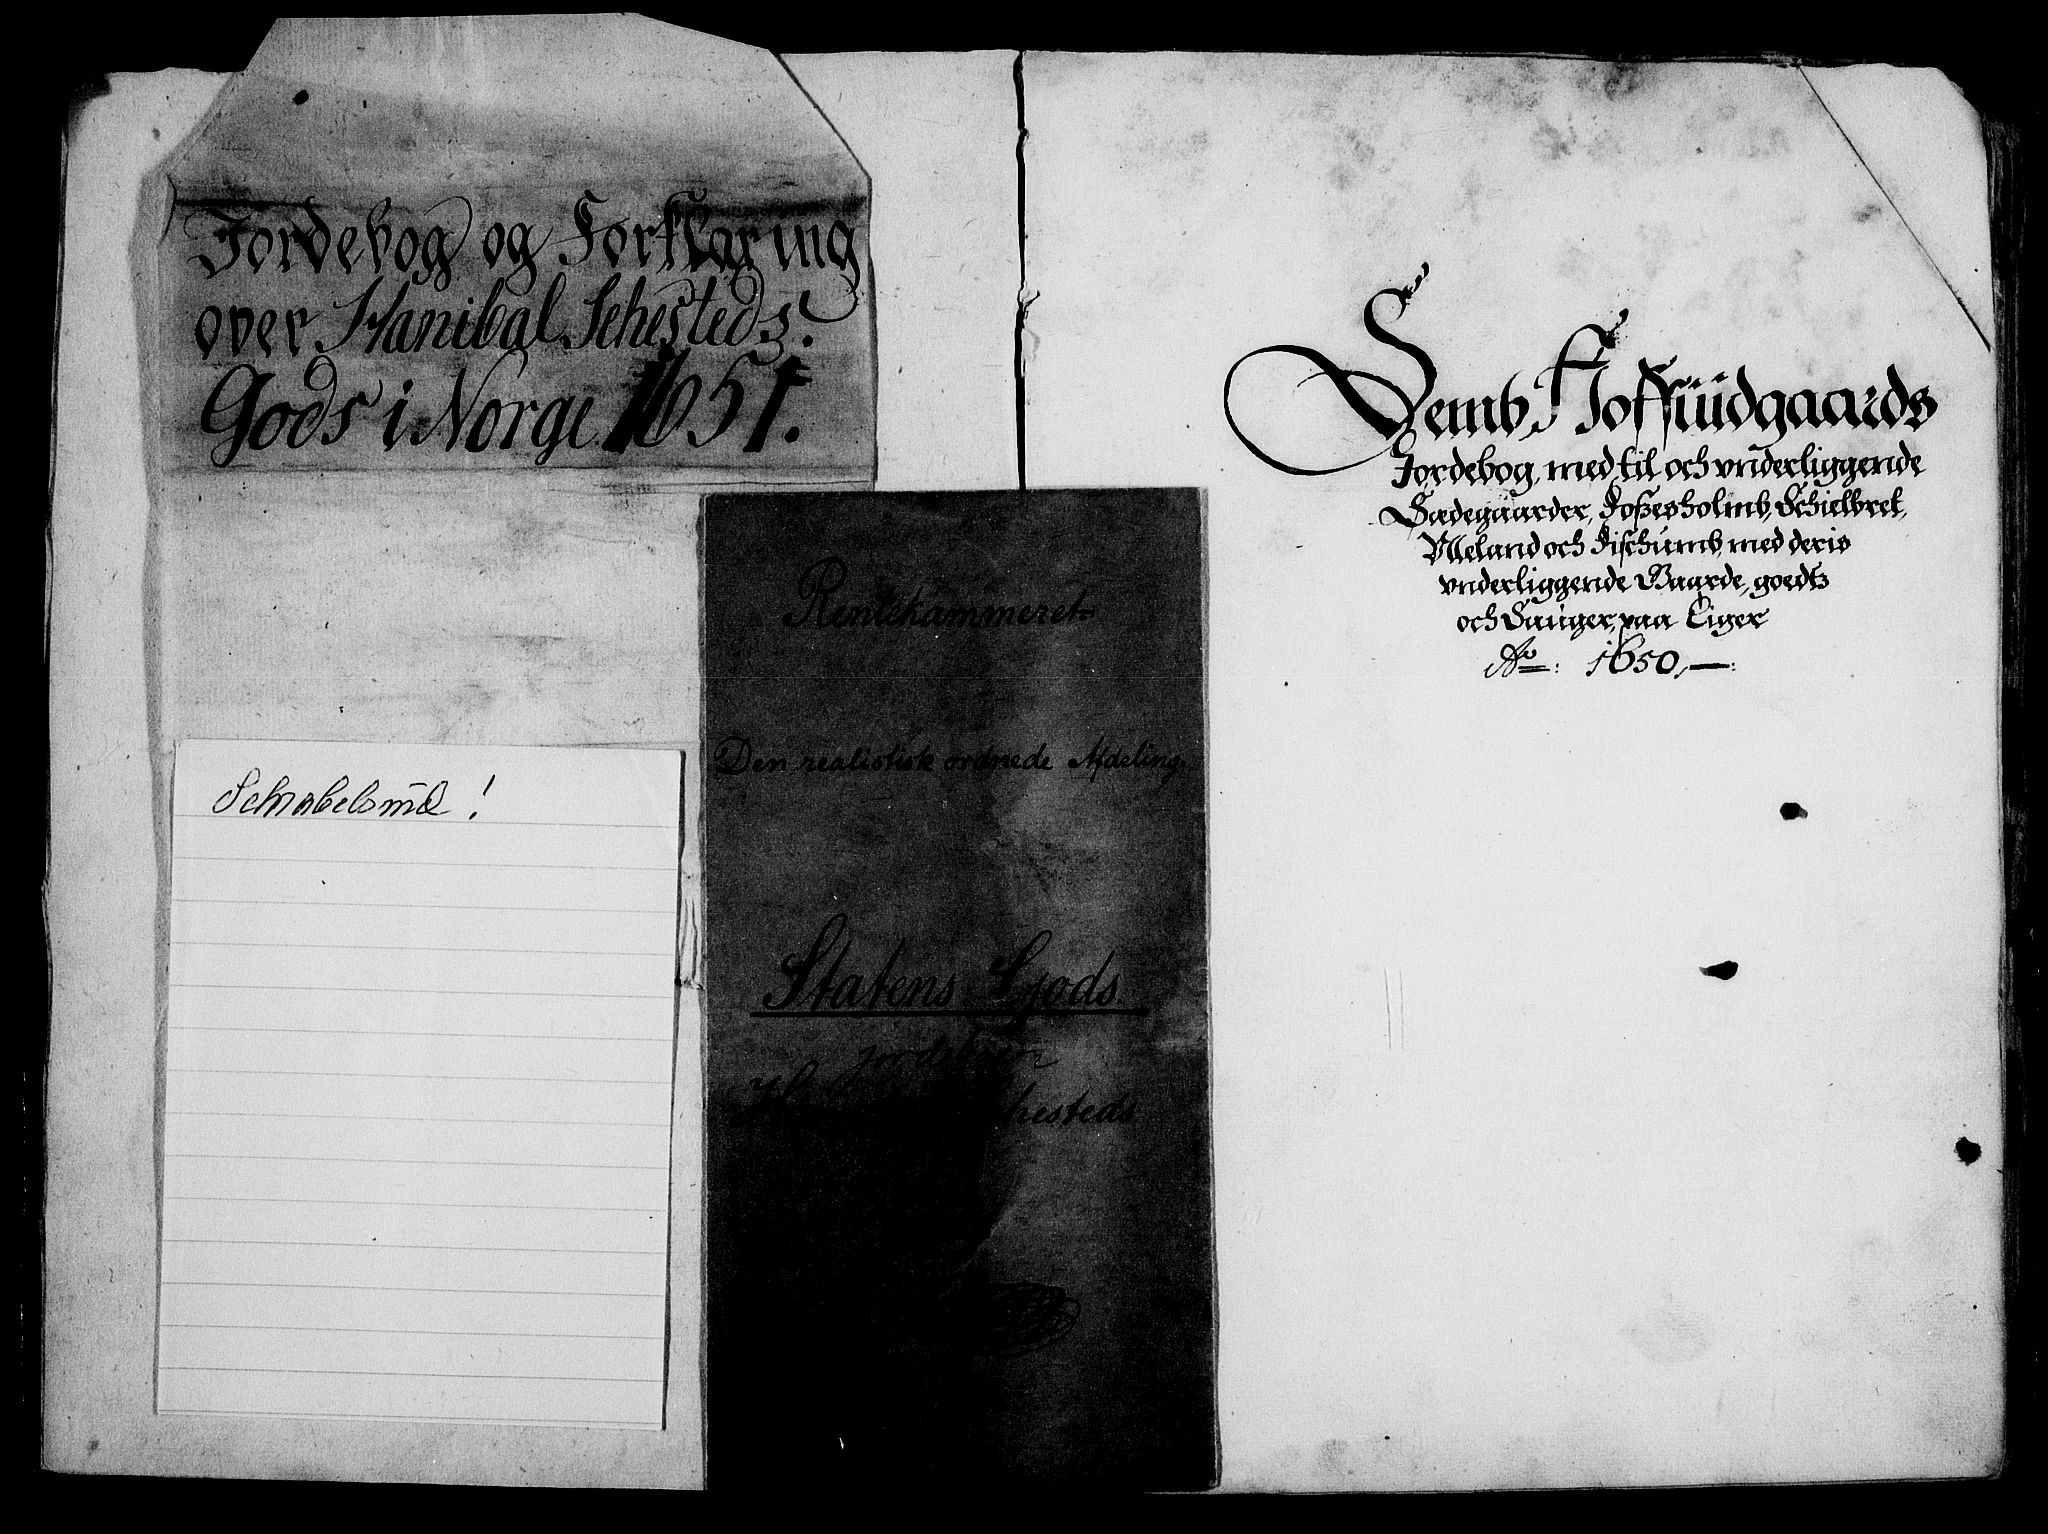 Jordebog og Forklaring
over Hanibal Sehesteds.
Gods i Norge 1651.
Schabelsund!
Rentekammeret
Den realistisk ordnede Afdeling.
Statens Gods.
Jordebøger
Sehesteds
Semb, Hoffuidgaards
Jordebog, med til och vnderliggende
Sædegaarder, Foßesholmb, Schielbret,
Ulleland och Fischumb, med deris
vnderliggende Gaarde, goedtz
och Sauger, paa Eiger
Ao: 1650,—: